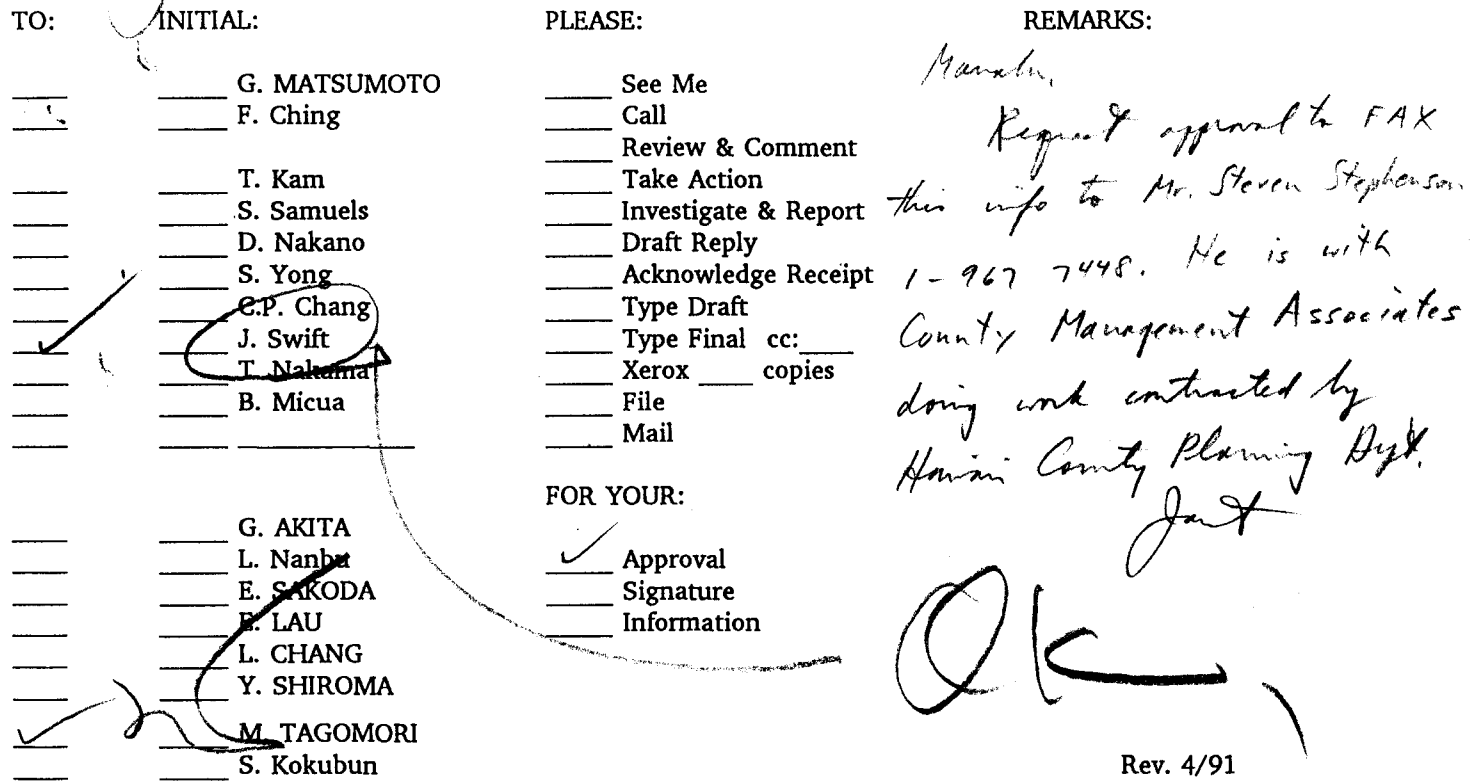 TO: INITIAL: PLEASE: REMARKS:
G. MATSUMOTO
F. Ching
T. Kam
S. Samuels
D. Nakano
S. Yong
C.P. Chang
J. Swift
T. Nakama
B. Micua
G. AKITA
L. Nanbu
E. SAKODA
E. LAU
L. CHANG
Y. SHIROMA
M. TAGOMORI
S. Kokubun
See Me
Call
Review & Comment
Take Action
Investigate & Report
Draft Reply
Acknowledge Receipt
Type Draft
Type Final cc:____
Xerox ____ copies
File
Mail
FOR YOUR:
Approval
Signature
Information
Manabu,
Request approval to FAX
this info to Mr. Steven Stephenson
1-967 7448. He is with
County Management Associates
doing work contracted by
Hawaii County Planning Dept.
Janet
OK,
Rev. 4/91